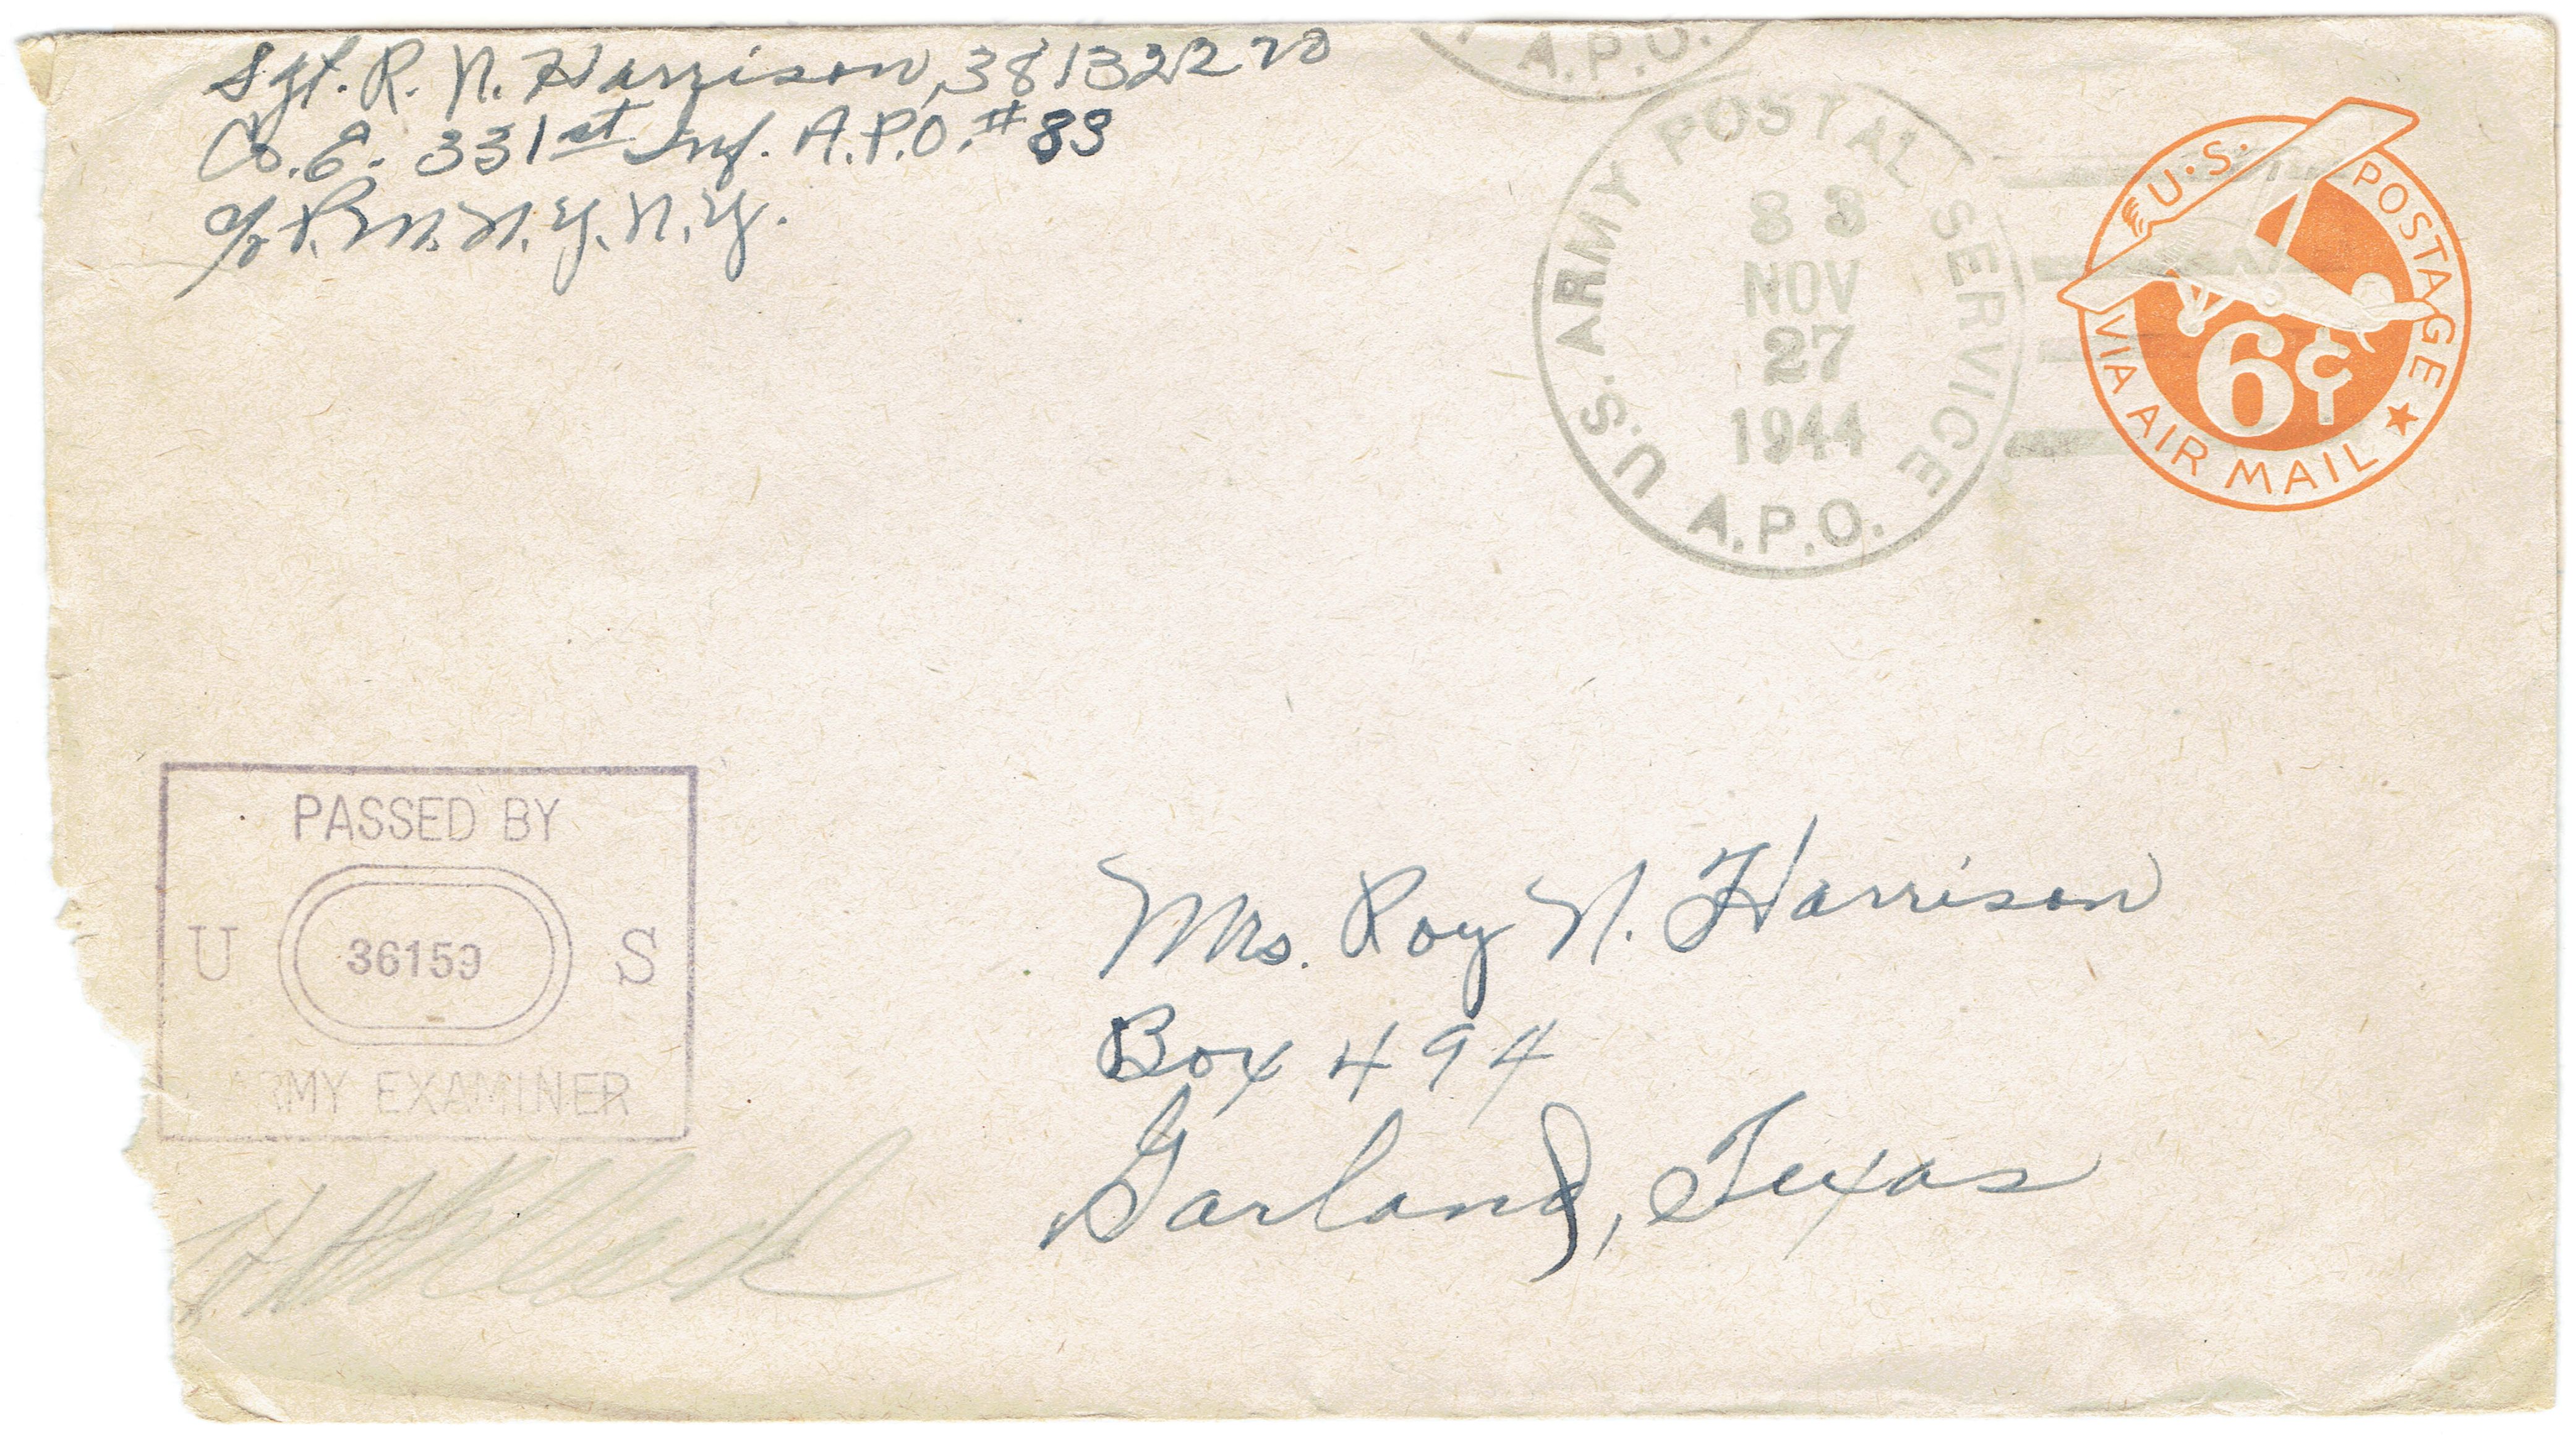 Sgt. R. N. Harrison, 38132270
Co. E. 331st Inf. A.P.O. #83
c/o P.M. N.Y. N.Y.
A.P.O.
U.S. ARMY POSTAL SERVICE
83
NOV
27
1944
A.P.O.
U.S. POSTAGE
6¢
VIA AIR MAIL
PASSED BY
U 36159 S
ARMY EXAMINER
Mrs. Roy N. Harrison
Box 494
Garland, Texas